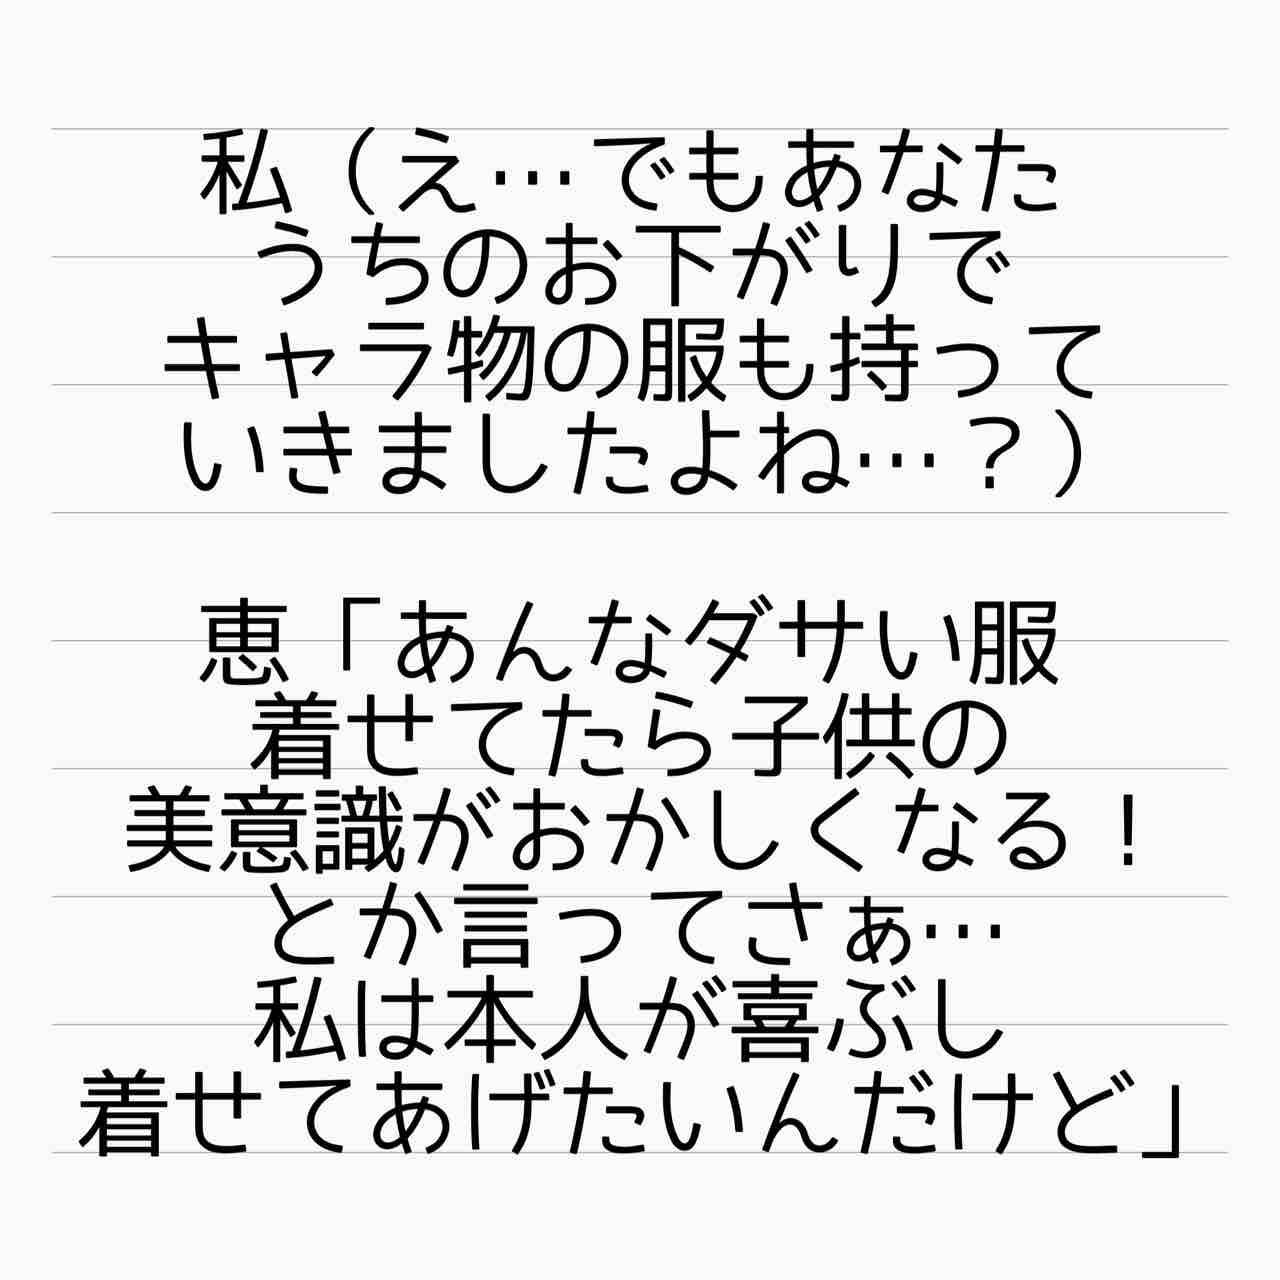 私（え…でもあなた
うちのお下がりで
キャラ物の服も持って
いきましたよね…？）
恵「あんなダサい服
着せてたら子供の
美意識がおかしくなる！
とか言ってさぁ…
私は本人が喜ぶし
着せてあげたいんだけど」